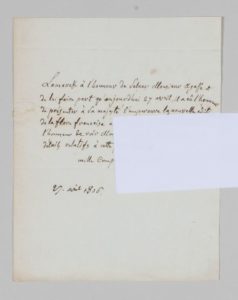 Lamarck à l'honneur de saluer Monsieur
de lui faire part qu'aujourdhui 27 avril il a eu l'honneur
de présenter à sa majesté l'empereur la nouvelle édit
de la flore françoise
l'honneur de voir
détails relatifs à cette
mille comp
27. 1806.